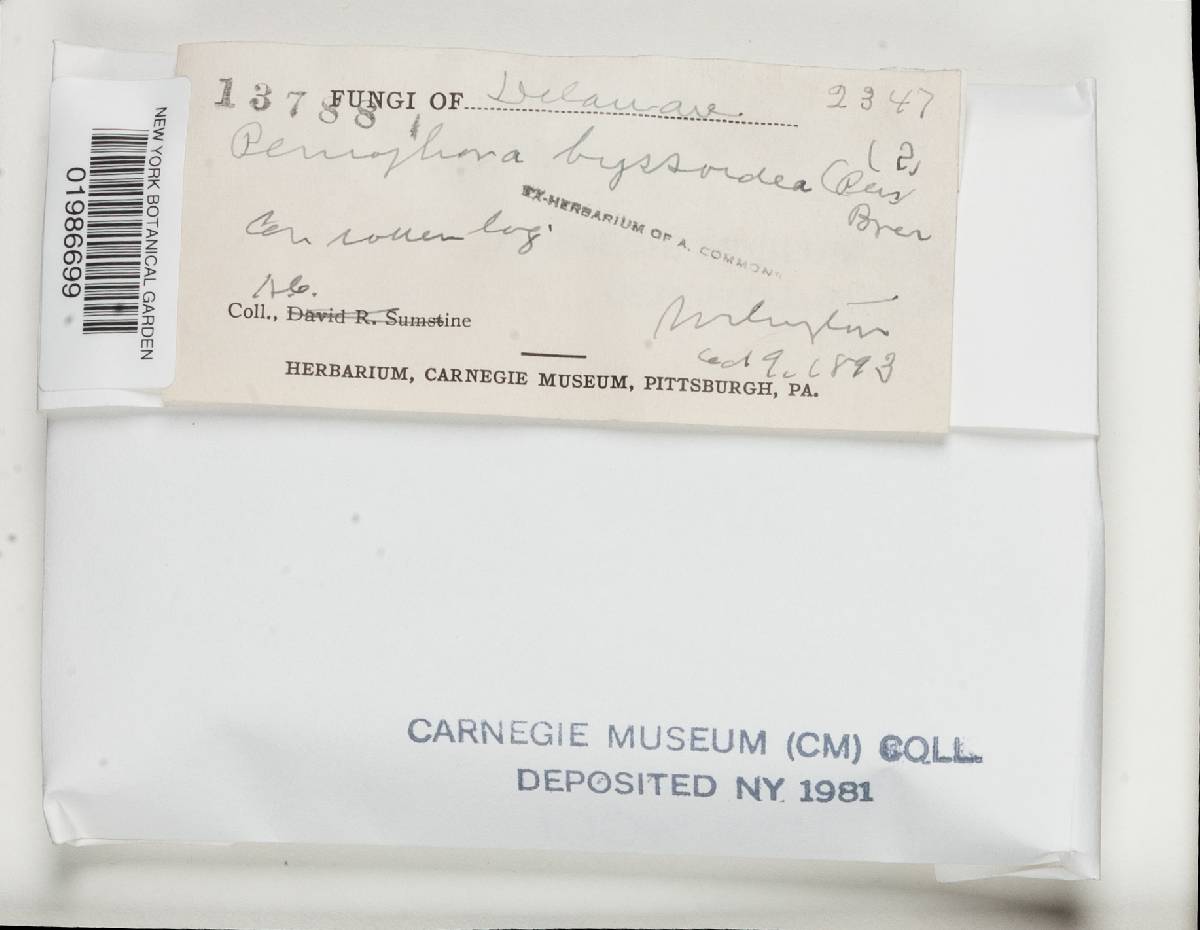 13788
FUNGI OF Delaware
2347
(2)
Peniophora byssoidea (Pers
Bres
EX-HERBARIUM OF A. COMMONS
On rotten log.
Coll., David R. Sumstine
Wilmington
Oct 9. 1893
HERBARIUM, CARNEGIE MUSEUM, PITTSBURGH, PA.
NEW YORK BOTANICAL GARDEN
01986699
CARNEGIE MUSEUM (CM) COLL.
DEPOSITED NY 1981